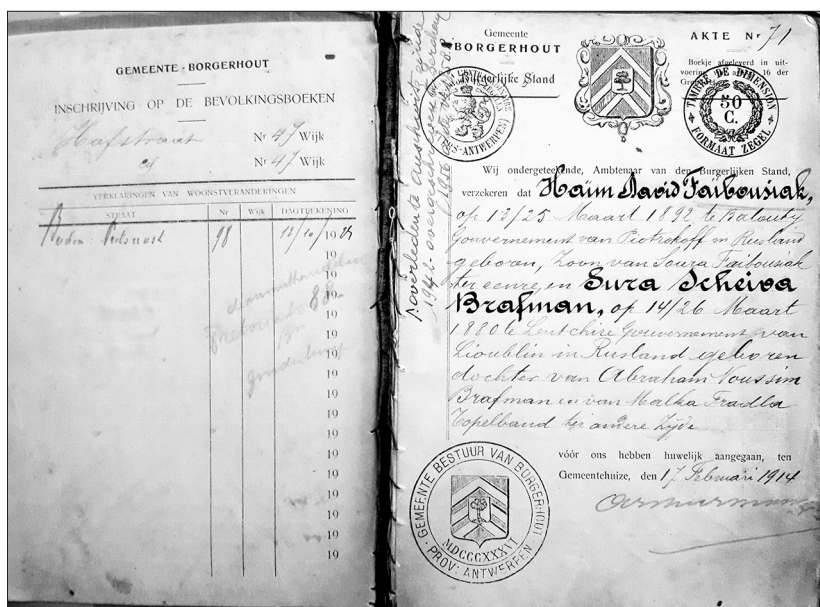 GEMEENTE BORGERHOUT
INSCHRIJVING OP DE BEVOLKINGSBOEKEN
Hofstraat Nr 47 Wijk
id Nr 47 Wijk
VERKLARINGEN VAN WOONSTVERANDERINGEN
STRAAT Nr Wijk DAGTEEKENING
98 12/10/19
19
19
19
88
19
19
19
19
19
19
19
19
19
19
19
19
19
overleden te Auschwitz
1942 overgeschreven
Gemeente
BORGERHOUT
Burgerlijke Stand
AKTE Nr 71
Boekje afgeleverd in uit-
16 der
TIMBRE DE DIMENSION
50
C.
FORMAAT ZEGEL
Wij ondergeteekende, Ambtenaar van den Burgerlijken Stand,
verzekeren dat Haïm David Faïbousiak,
op 13/25 Maart 1892 te Balouty
Gouvernement van Piotrokoff in Rusland
geboren, Zoon van Soura Faibousiak
ter eenre, en Sura Scheiva
Brafman, op 14/26 Maart
1880 te Gouvernement van
Lioublin in Rusland geboren
dochter van Abraham Noussim
Brafman en van Malka Fradla
Topelband ter andere zijde
vóór ons hebben huwelijk aangegaan, ten
Gemeentehuize, den 17 Februari 1914
GEMEENTE BESTUUR VAN BORGERHOUT
MDCCCXXXVI
PROV: ANTWERPEN